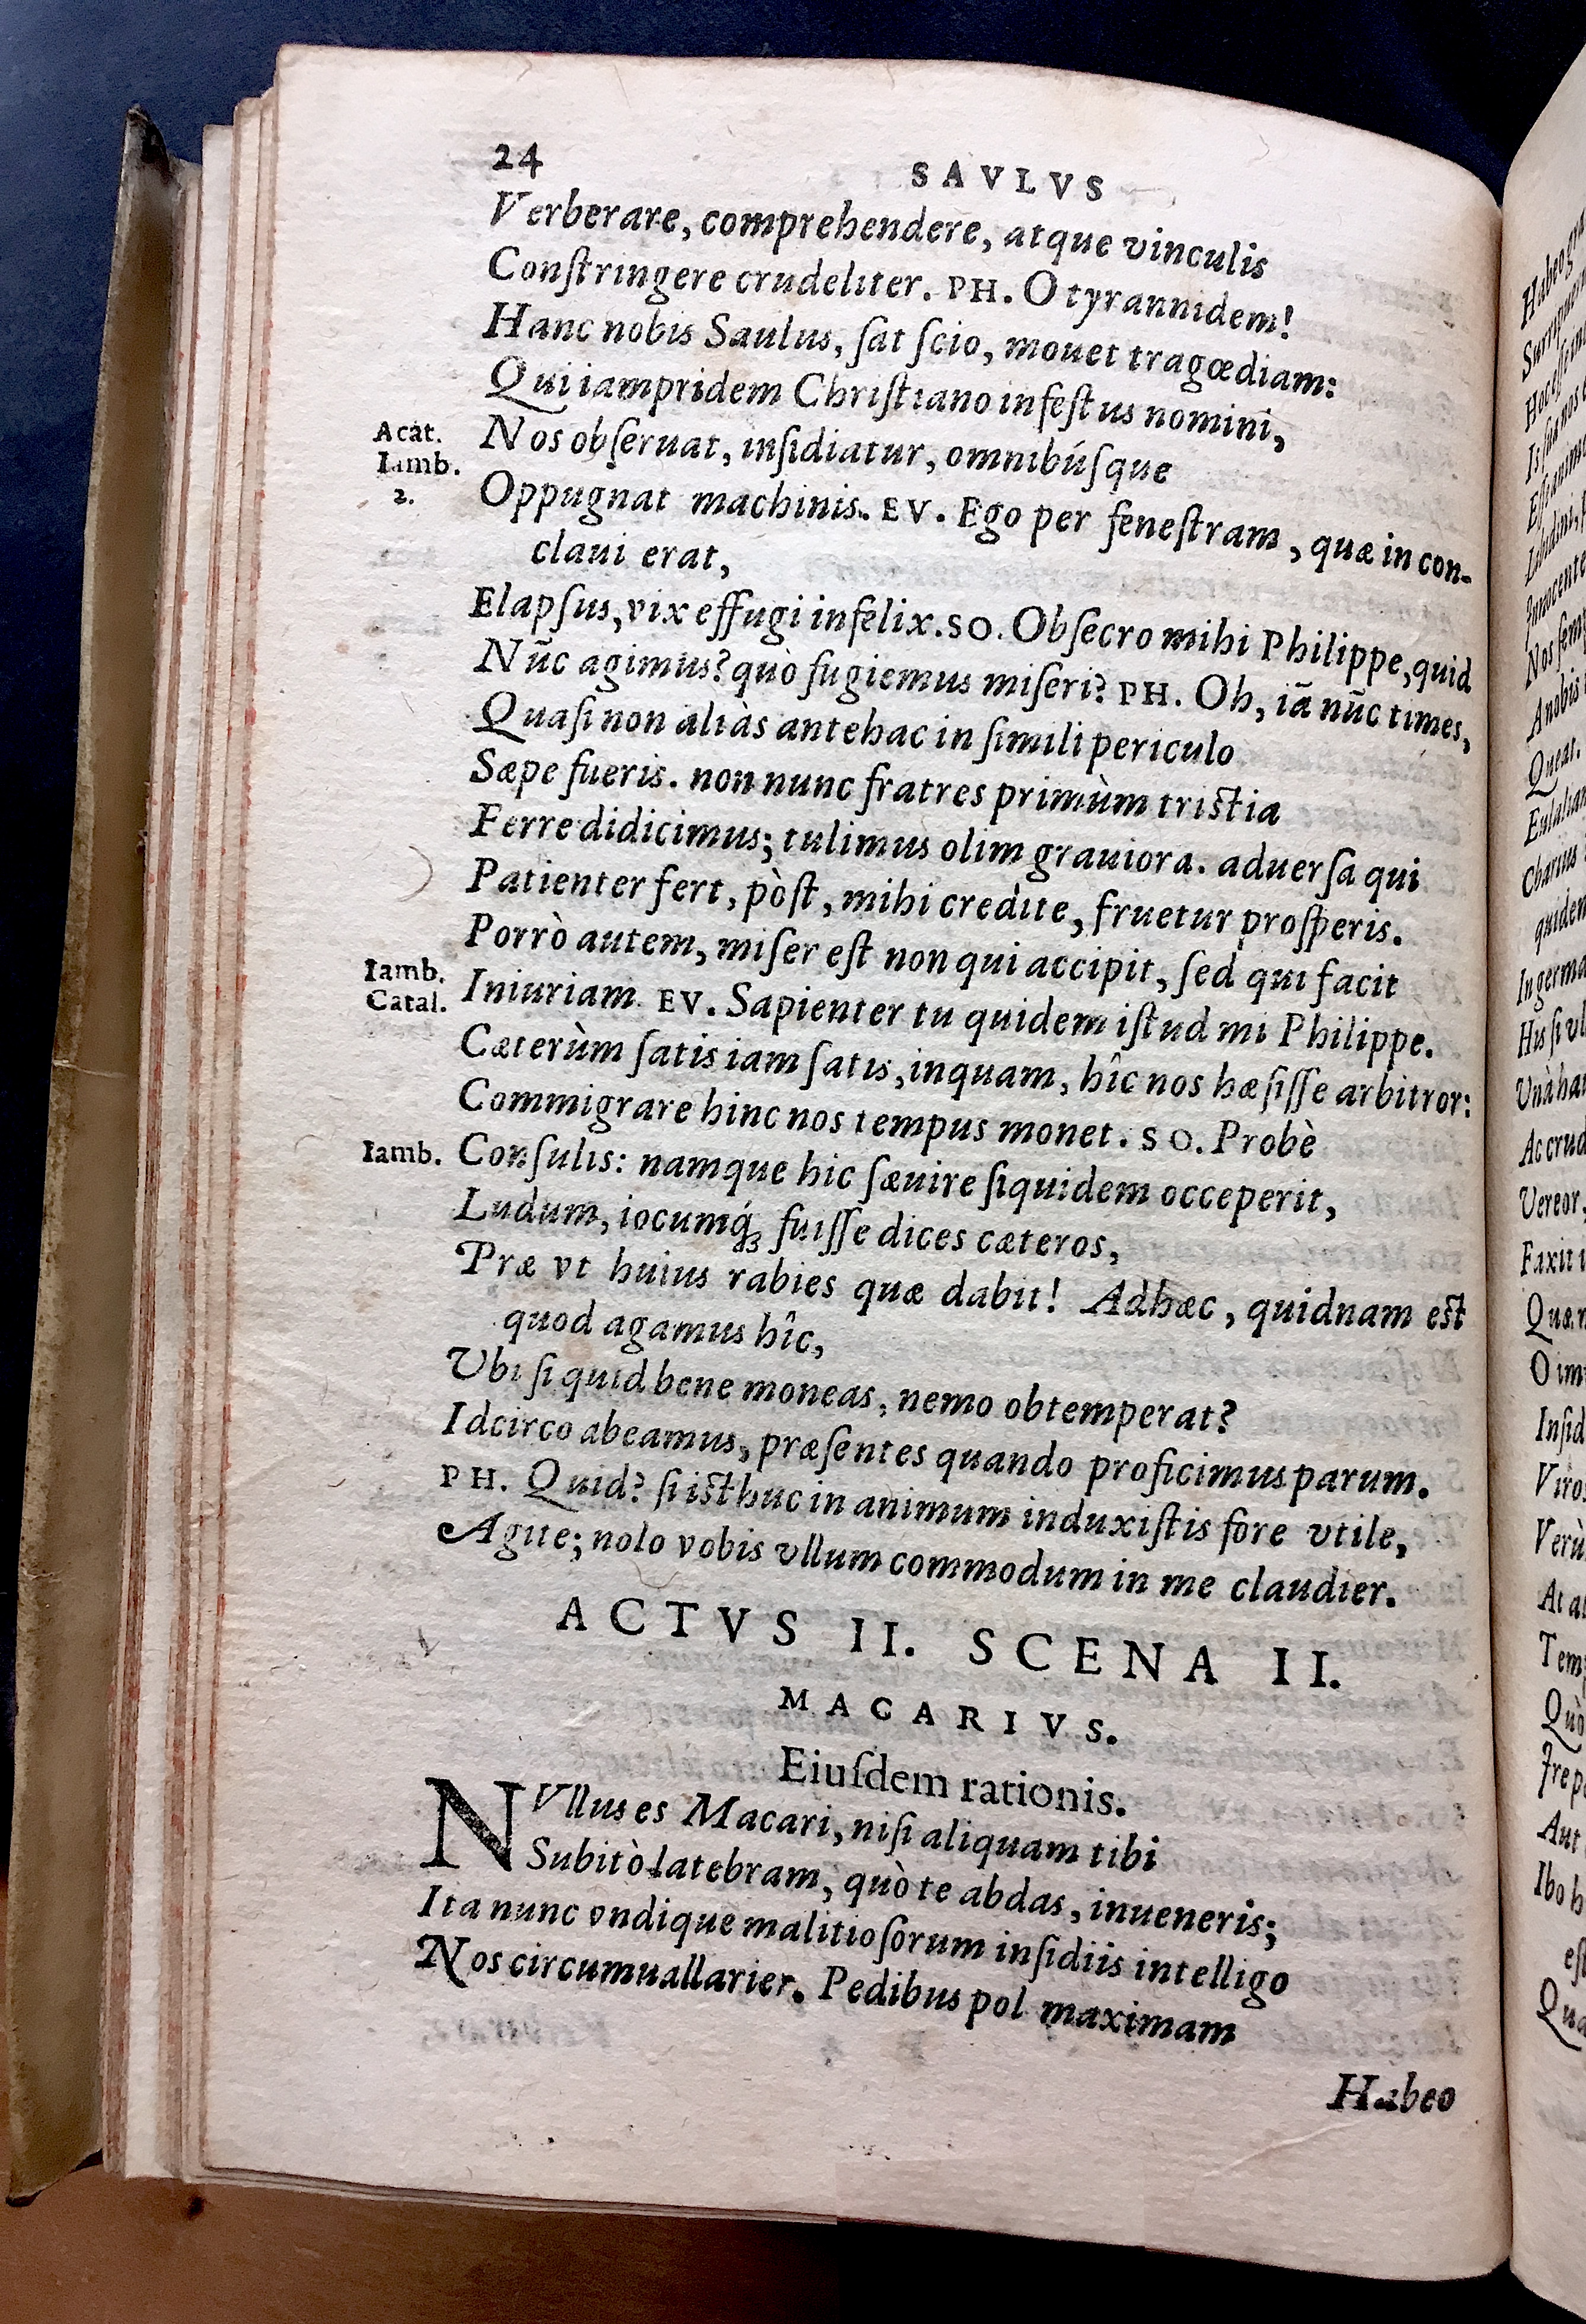 24
SAVLVS
Verberare, comprehendere, atque vinculis
Conſtringere crudeliter. PH. O tyrannidem!
Hanc nobis Saulus, ſat ſcio, mouet tragœdiam:
Qui iampridem Chriſtiano infeſtus nomini,
Acat. Nos obſeruat, inſidiatur, omnibúſque
Iamb.
2. Oppugnat machinis. EV. Ego per feneſtram, quæ in con-
claui erat,
Elapſus, vix effugi infelix. SO. Obſecro mihi Philippe, quid
Nūc agimus? quò fugiemus miſeri? PH. Oh, iā nūc times,
Quaſi non aliàs antehac in ſimili periculo
Sæpe fueris. non nunc fratres primùm triſtia
Ferre didicimus; tulimus olim grauiora. aduerſa qui
Patienter fert, pòſt, mihi credite, fruetur proſperis.
Porrò autem, miſer eſt non qui accipit, ſed qui facit
Iamb.
Catal. Iniuriam. EV. Sapienter tu quidem iſtud mi Philippe.
Cæterùm ſatis iam ſatis, inquam, hîc nos hæſiſſe arbitror:
Commigrare hinc nos tempus monet. SO. Probè
Iamb. Conſulis: namque hic ſæuire ſiquidem occeperit,
Ludum, iocumq́ꝫ fuiſſe dices cæteros,
Præ vt huius rabies quæ dabit! Adhæc, quidnam eſt
quod agamus hîc,
Vbi ſi quid bene moneas, nemo obtemperat?
Idcirco abeamus, præſentes quando proficimus parum.
PH. Quid? ſi iſthuc in animum induxiſtis fore vtile,
Agite; nolo vobis vllum commodum in me claudier.
ACTVS II. SCENA II.
MACARIVS.
Eiuſdem rationis.
NVllus es Macari, niſi aliquam tibi
Subitò latebram, quò te abdas, inueneris;
Ita nunc vndique malitioſorum inſidiis intelligo
Nos circumuallarier. Pedibus pol maximam
Habeo